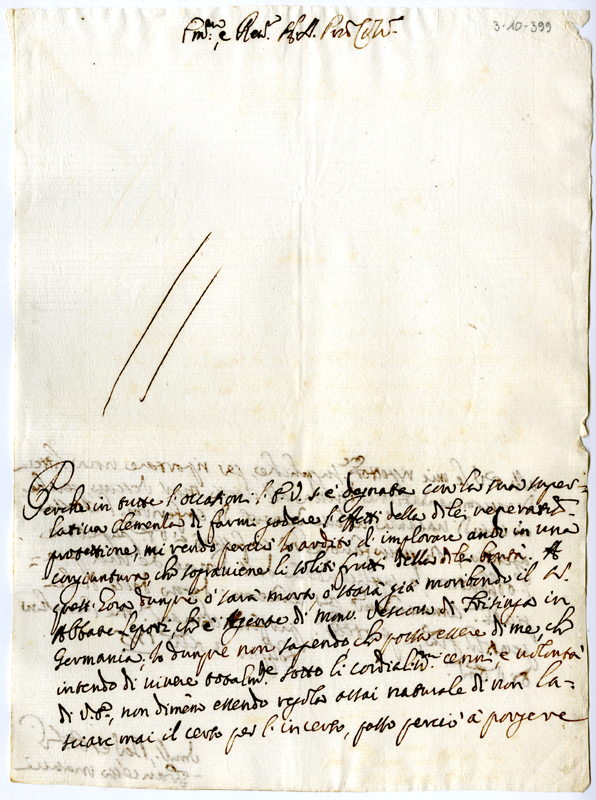 3-10-399
Em.mo e Rev.mo
Perche in tutte l'occasioni l'E.V. s'è degnata con la sua super-
lativa clemenza di farmi godere l'effetti della di lei
protettione, mi rendo perciò ardito d'implorare anco in una
congiuntura, che sopraviene li soliti frutti della di lei bontà. A
quest'hora dunque o sarà morto, o starà già moribondo il S.r
Abbate Lepori che è Agente di Mons. Vescovo di Frisinga in
Germania. Io dunque non sapendo che possa essere di me, ch
intendo di vivere totalm.te sotto li cordialiss.mi cenni, e volontà
di V.E., non dimeno essendo regola assai naturale di non la-
sciare mai il certo per l'incerto, posto perciò à porgere